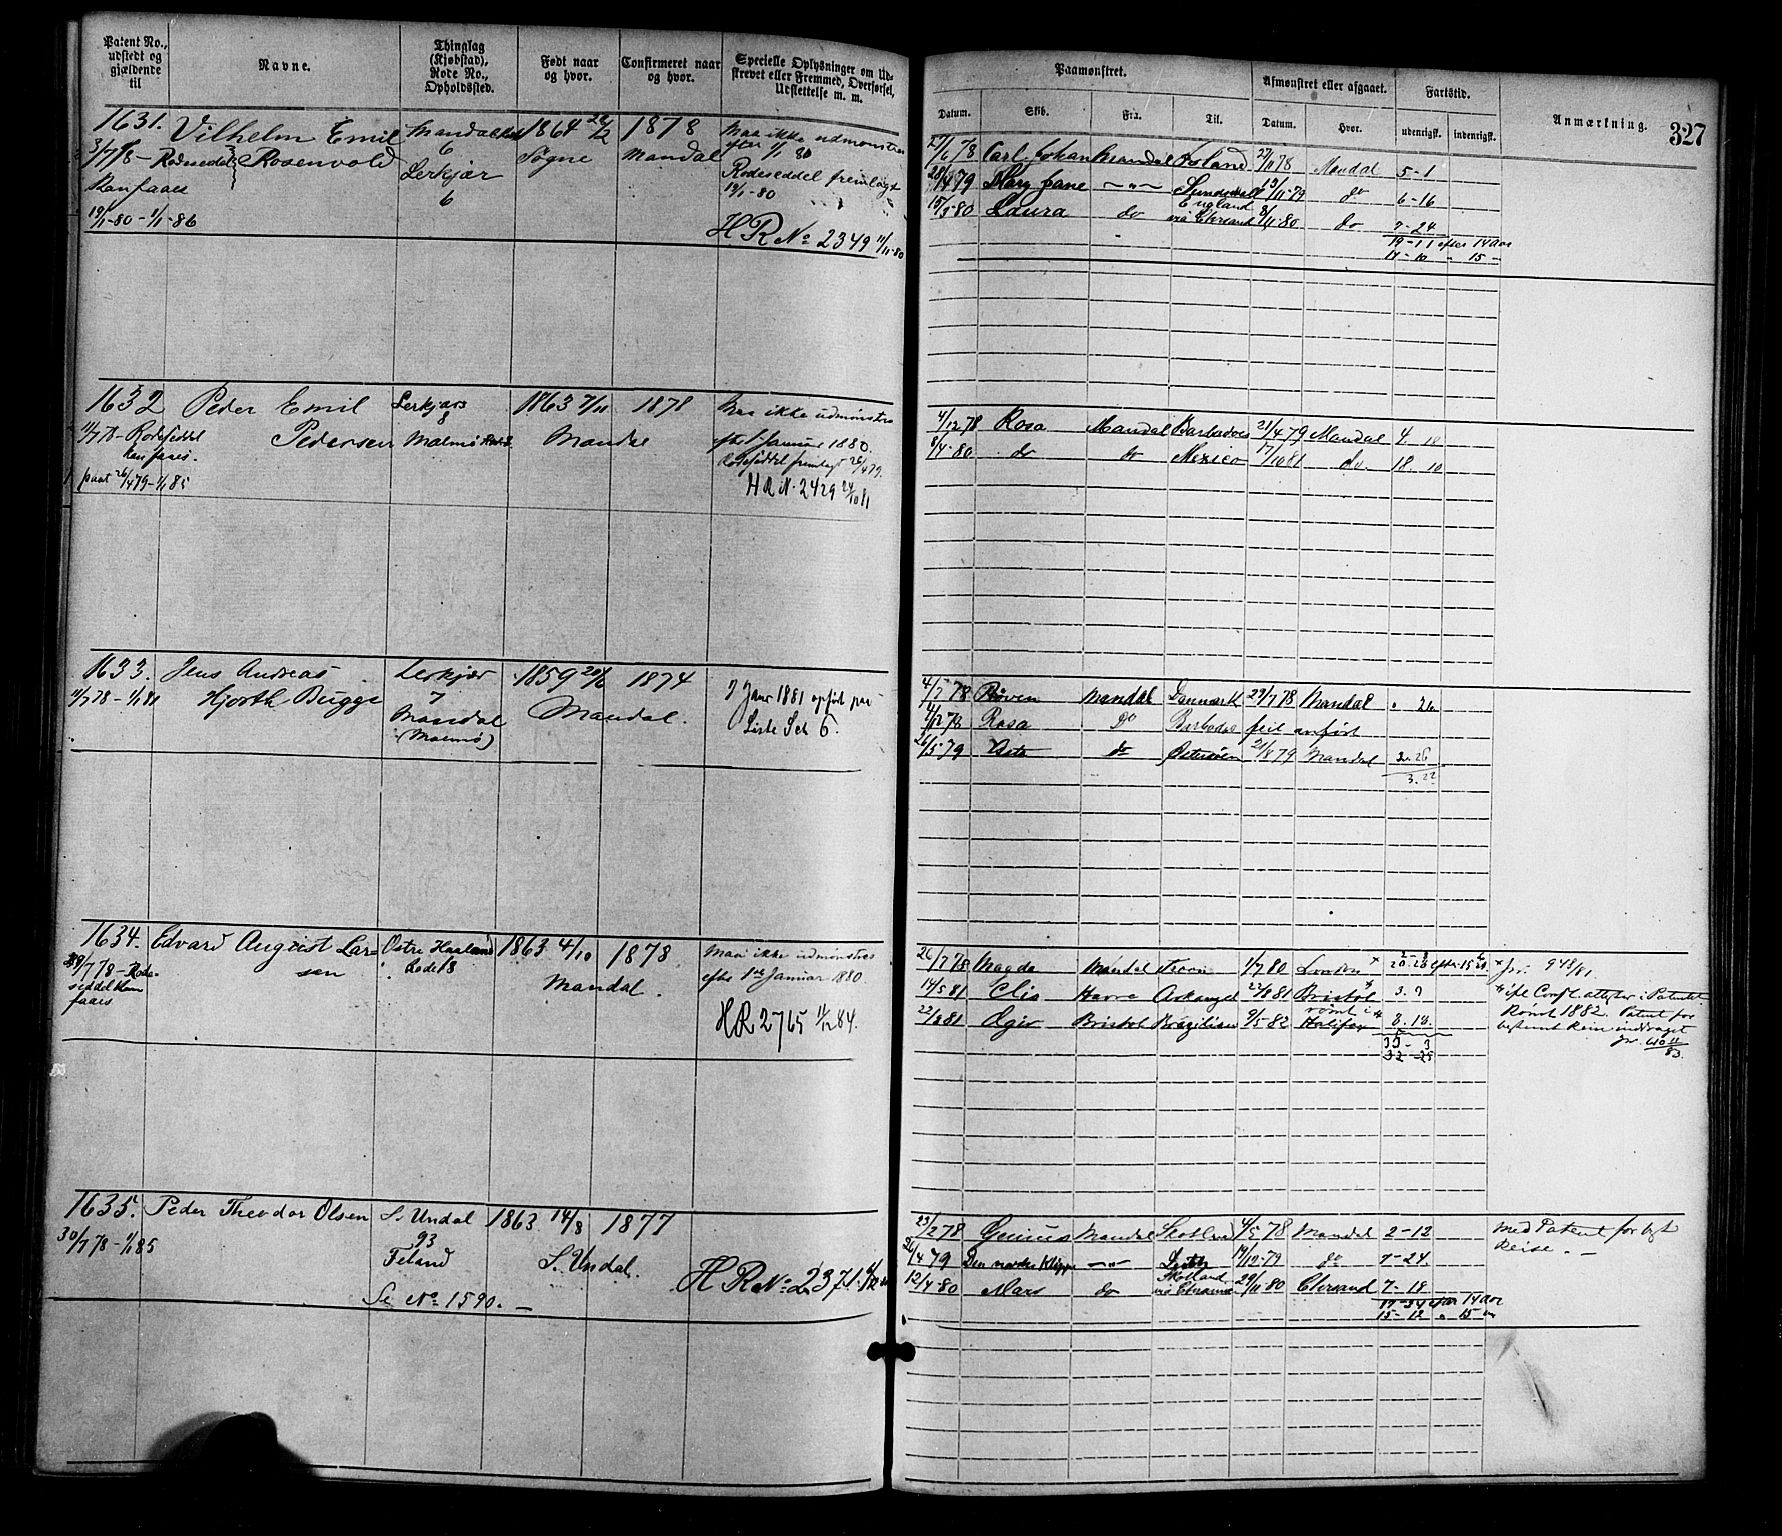 Patent No., udstedt og gjældende til
Navne.
Thinglag (Kjøbstad), Rode No., Opholdssted.
Født naar og hvor.
Confirmeret naar og hvor.
Specielle Oplysninger om Udskrevet eller Fremmed, Overførsel, Udslettelse m. m.
Paamønstret.
Afmønstret eller afgaaet.
Fartstid.
Anmærkning.
327
Datum.
Skib.
Fra.
Til.
Datum.
Hvor.
udenrigsk.
indenrigsk.
1631. Vilhelm Emil 1864 1878 Maa ikke udmønstres
3/7 78 - Rodeseddel Rosenvold 6 Søgne Mandal efter 1/1 80
Kan faaes Lerkjær Rodeseddel fremlagt
6 19/1-80
19/1-80-1/1-86 H R No 2349 11/11-80
27/6 78 Carl Johan Mandal Island 27/11 78 Mandal 5-1
28/4 79 Mary Jane -"- 13/11-79 do 6-16
England
15/3-80 Laura do via Chrsand 8/11-80 do 7-24
19-11 efter 14 Aar
17-10 " 15 -
1632 Peder Emil Lerkjær 1863 7/11 1878 Maa ikke udmønstres
8
11/7 78-Rodeseddel Pedersen Malmø Mandal efter 1 Januar 1880.
kan faaes. Rodeseddel fremlagt 26/4 79
paat 26/4 79-1/1 85 H R N. 2429 24/10 81
4/12 78 Rosa Mandal Barbados 21/4 79 Mandal 4 18
8/4-80 do do Mexico 17/10 81 do 18 10
1633. Jens Andreas Lerkjær 1859 20/6 1874
11/7 78-1/1 81 Hjorth Bugge 7 Mandal. 7 Jaur 1881 opført paa
Mandal Liste Set 6.
(Malmø)
4/7 78 Mandal Danmark 29/7 78 Mandal " 26
4/12 78 Rosa do Barbados feil anført
26/5 79 do Østersøen 21/8 79 Mandal 2. 26
3. 22
1634. Edvard August Lar= Østre Haaland 1863 4/10 1878 Maa ikke udmønstres
/7 78-Rode- sen Rode 18 Mandal. efter 1ste Januar 1880
seddel kan
faaes H R 2765 11/12 84.
26/7 78 Magda Mandal 1/7 80 London x 20-28 efter 15 x Jr: 948/81.
14/5 81 Havre Arkangel 22/8 81 Bristol 3. 9
22/8 81 Ægir Bristol Brazilien 9/5 82 Halifax 8. 18.
rømt i
Rømt 1882. Patent for
bestemt Reise inddraget
35- 3
32-25
1635. Peder Theodor Olsen S. Undal 1863 14/8 1877
30/7 78-1/1 85 93 S. Undal.
Feland H R No 2371.
Se No 1590. -
23/2 78 Genius Mandal 4/5 78 Mandal 2-12 med Patent for bgt
26/4 79 Den norske Klippe -"- Leith 19/12-79 do 7-24 Reise. -
Skotland
12/4-80 Mars do 29/11 80 Chrsand 7-18
17-24 efter 14 Aar
15-12 " 15 "